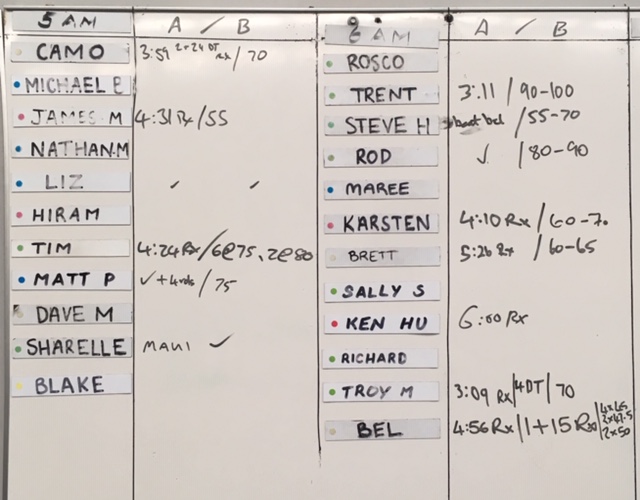 5 AM A / B
CAMO 3:59 2+24 DT Rx / 70
MICHAEL
JAMES M 4:31 Rx / 55
NATHAN.M
LIZ ✓ ✓
HIRAM
TIM 4:24 Rx / 6@75, 2@80
MATT P ✓ + / 75
DAVE M
SHARELLE MAUI ✓
BLAKE
AM A / B
ROSCO
TRENT 3:11 / 90-100
STEVE H / 55-70
ROD ✓ / 80-90
MAREE
KARSTEN 4:10 Rx / 60-70
BRETT 5:26 Rx / 60-65
SALLY S
KEN HU 6:00 Rx
RICHARD
TROY M 3:09 Rx / 4DT / 70
BEL 4:56 Rx / 1+15 Rx / 4x45 2x47.5 2x50